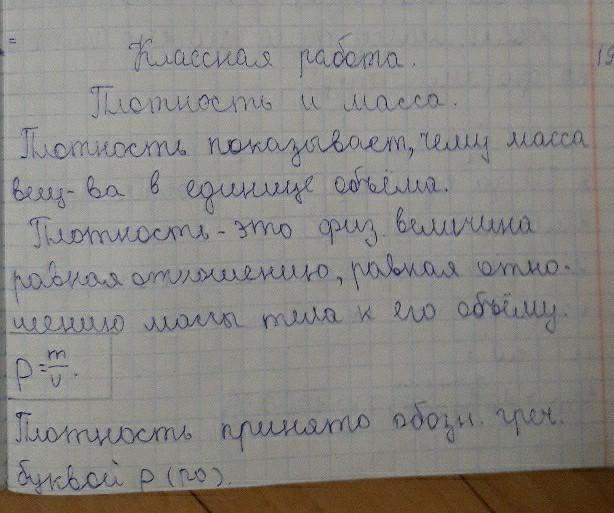 Классная работа.
Плотность и масса.
Плотность показывает, чему масса
вещ-ва в единице объёма.
Плотность - это физ. величина
равная отношению, равная отно-
шению массы тела к его объёму.
p = m/v.
Плотность принято обозн. греч.
буквой p (ро).